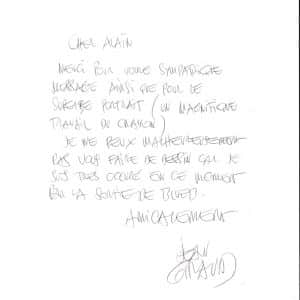 CHER ALAIN
MERCI POUR VOTRE SYMPATHIQUE
MESSAGE AINSI QUE POUR LE
SUPERBE PORTRAIT (UN MAGNIFIQUE
TRAVAIL DU CRAYON)
JE NE PEUX MALHEUREUSEMENT
PAS VOUS FAIRE DE DESSIN CAR JE
SUIS TRES OCCUPÉ EN CE MOMENT
PAR LA SORTIE DE BLUEB.
AMICALEMENT
JEAN
GIRAUD